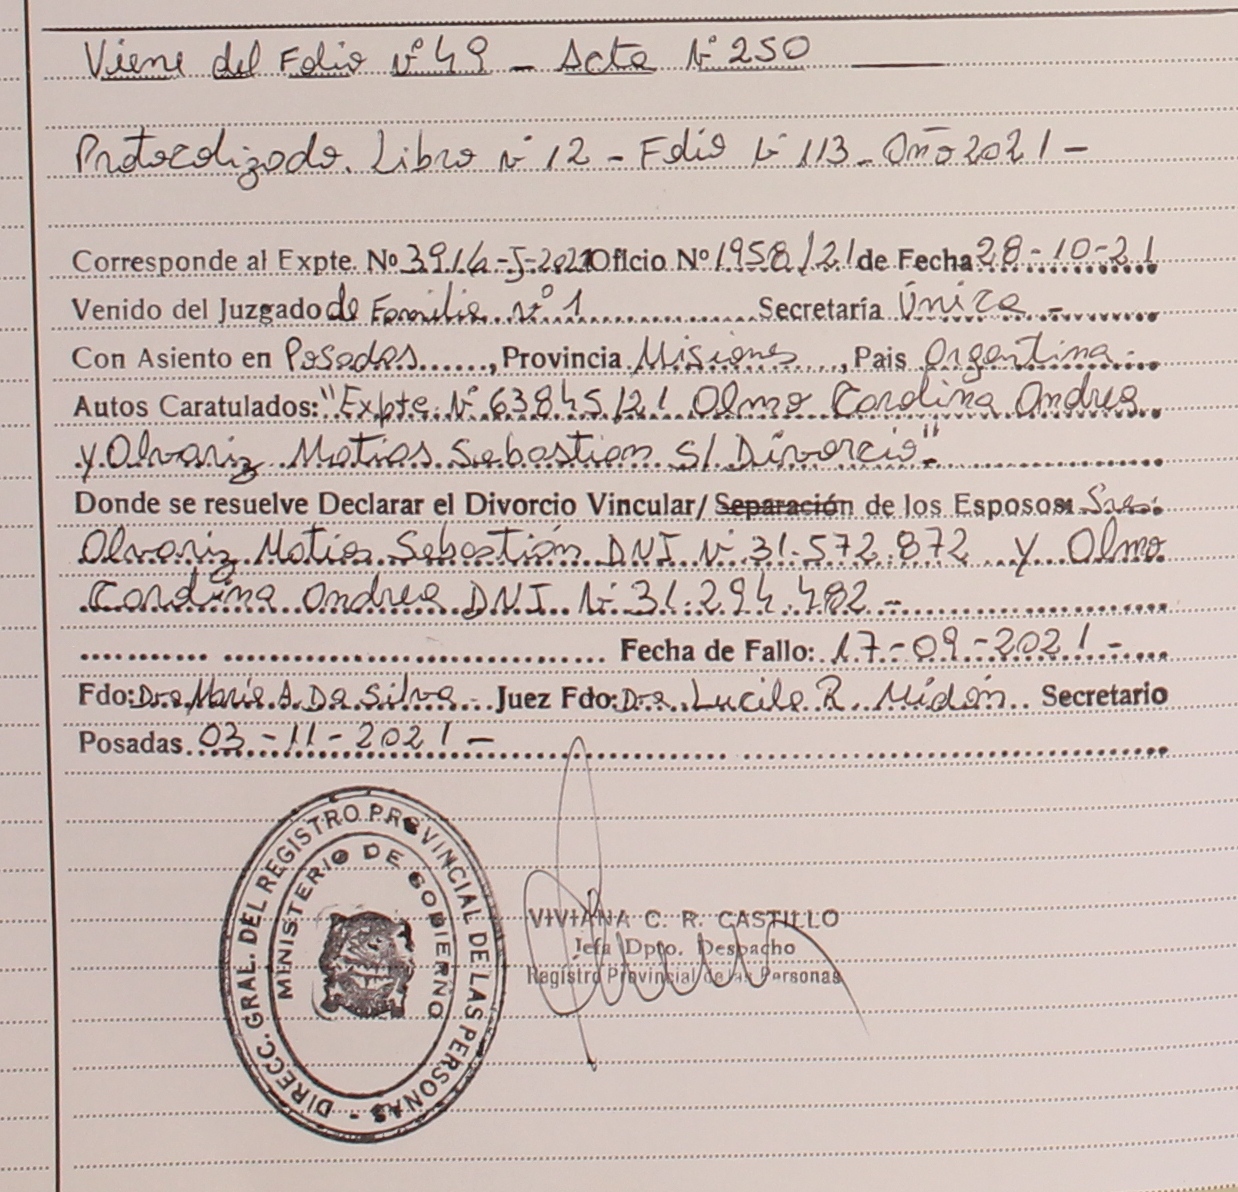 Viene del Folio Nº 49 - Acta Nº 250
Protocolizado. Libro Nº 12 - Folio Nº 113 - Año 2021 -
Corresponde al Expte. Nº 3914-J-2021 Oficio Nº 1958/21 de Fecha 28-10-21
Venido del Juzgado de Familia Nº 1 Secretaría Única -
Con Asiento en Posadas, Provincia Misiones, Pais Argentina -
Autos Caratulados: "Expte. Nº 63845/21 Olmo Carolina Andrea
y Alvariz Matias Sebastian S/ Divorcio"-
Donde se resuelve Declarar el Divorcio Vincular/ Separación de los Esposos: Sres.
Alvariz Matias Sebastián DNI Nº 31.572.872 y Olmo
Carolina Andrea DNI Nº 31.294.482 -
Fecha de Fallo: 17-09-2021 -
Fdo: Dra. Maria A. Da Silva - Juez Fdo: Dra. Lucila R. Midón Secretario
Posadas 03-11-2021 -
DIRECC. GRAL. DEL REGISTRO PROVINCIAL DE LAS PERSONAS -
MINISTERIO DE GOBIERNO
VIVIANA C. R. CASTILLO
Jefa Dpto. Despacho
Registro Provincial de las Personas